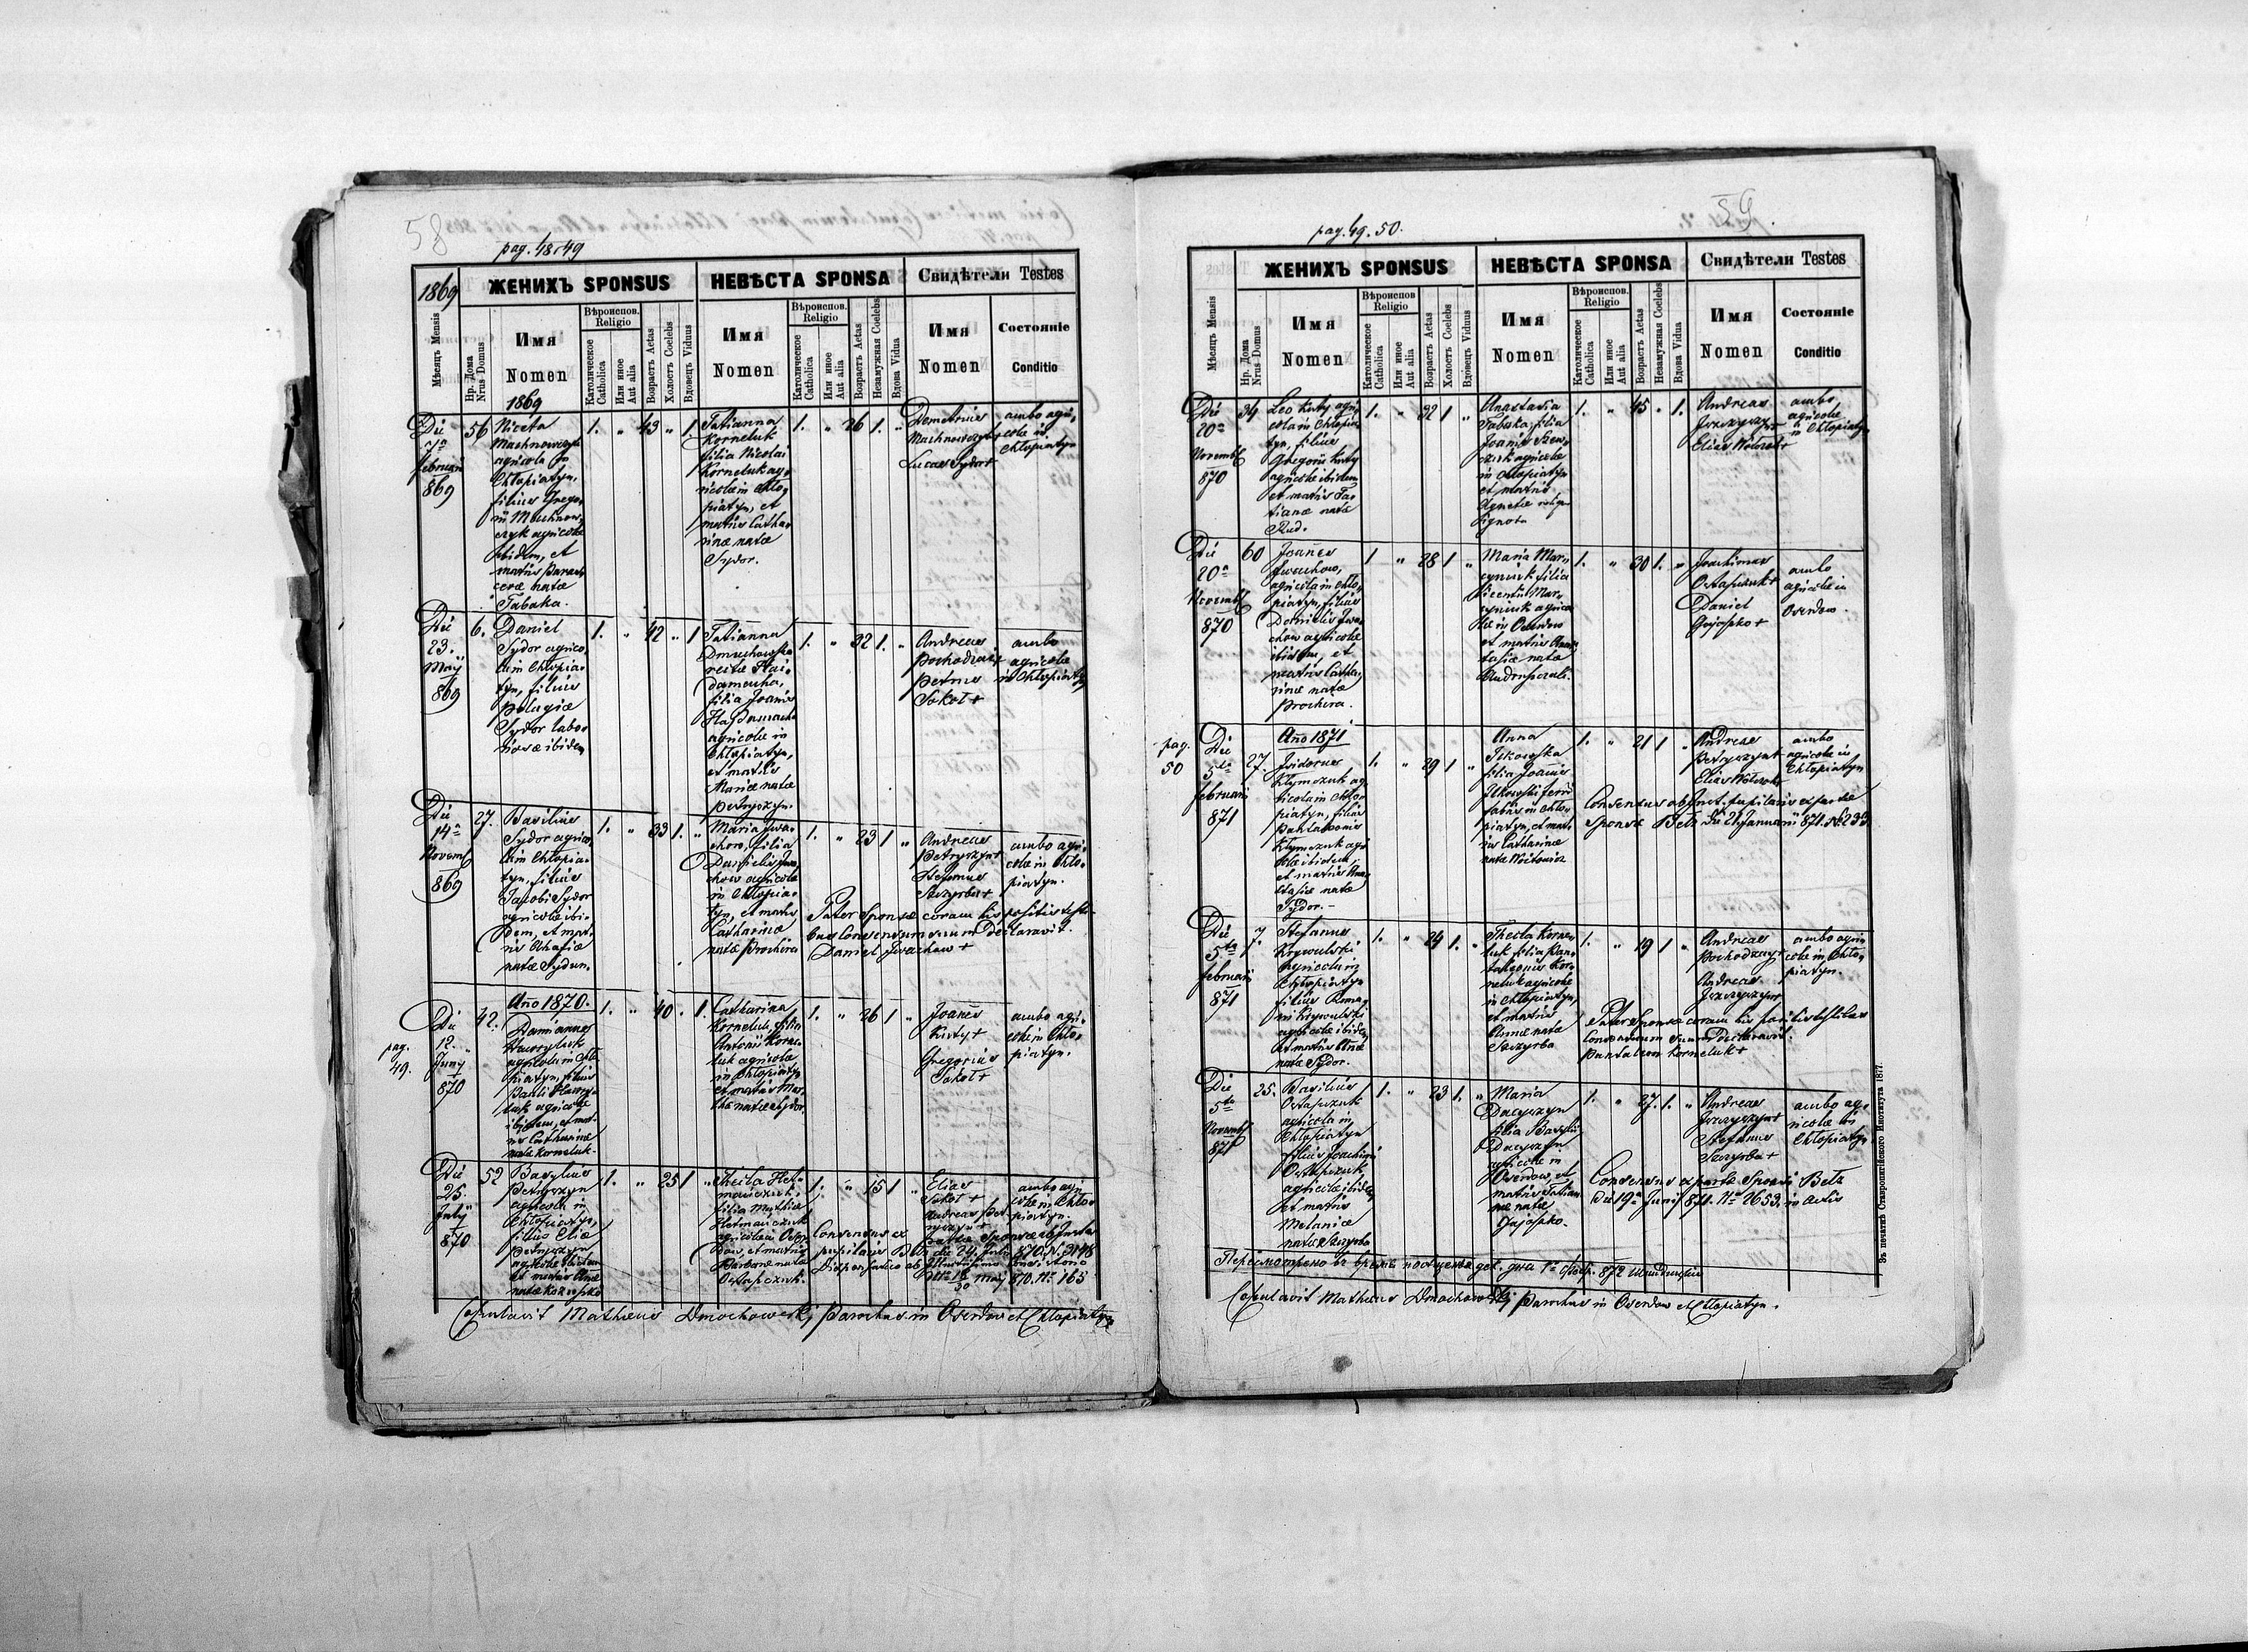 58
pag. 48 49
1869
ЖЕНИХЪ SPONSUS
НЕВѢСТА SPONSA
Свидѣтели Testes
Мѣсяцъ Mensis
Нр. Дома
Nrus Domus
Имя
Nomen
Вѣроиспов.
Religio
Католическое
Catholica
Или иное
Aut alia
Возрастъ Aetas
Холостъ Coelebs
Вдовецъ Viduus
Имя
Nomen
Вѣроиспов.
Religio
Католическое
Catholica
Или иное
Aut alia
Возрастъ Aetas
Незамужная Coelebs
Вдова Vidua
Имя
Nomen
Состоянie
Conditio
1869
Die
7a
februarii
869
56
Niceta
Machnowczyk
agricola in
Chłopiatyn,
filius Grego,
rii Machnow,
czyk agricolæ
ibidem, et
matris Paras,
cevæ natæ
Tabaka.
1. " 43 " 1
Tatianna
Korneluk
filia Nicolai
Korneluk ag,
ricolæ in Chło,
piatyn, et
matris Catha,
rinæ natæ
Sydor.
1. " 26 1. "
Demetrius
Machnowczyk
Lucas Sydor +
ambo agri,
colæ in
Chłopiatyn
Die
23.
Maij
869
6.
Daniel
Sydor agrico,
la in Chłopia,
tyn, filius
Pelagiæ
Sydor labo,
riosæ ibidem
1. " 42 " 1
Tatianna
Dmuchowska
filia Joanis
agricolæ in
Chłopiatyn,
et matris
Mariæ natæ
Petryszyn.
1. " 32 1. "
Andreas
Pochodzaj +
Petrus
Sokoł +
ambo
agricolæ
in Chłopiatyn
Die
14a
Novembr
869
27.
Basilius
Sydor agrico,
la in Chłopia,
tyn, filius
Jacobi Sydor
agricolæ ibi,
dem, et mat,
ris
natæ
1. " 33 1. "
Maria Iwa,
chow, filia
Danielis Iwa,
chow agricolæ
in Chłopia,
tyn, et matris
Catharinæ
natæ Prochira
1. " 23 1 "
Andreas
Petryszyn +
Stefanus
Szczyrba +
ambo agri,
colæ in Chło,
piatyn.
Pater Sponsæ coram his positis testi,
bus Consensum suum declaravit.
Daniel Iwachow +
Ano 1870.
pag.
49.
Die
12.
Junij
870
42.
Damiannus
Hawryluk
agricola in Chło,
piatyn, filius
Pauli Hawry,
luk agricolæ
ibidem, et mat,
ris Catharinæ
natæ Korneluk.
1. " 40 . 1.
Catharina
Korneluk filia
Antonii Korne,
luk agricolæ
in Chłopiatyn
et matris Mar,
thæ natæ Sydor
1. " 26 1 "
Joanes
Kuty +
Gregorius
Sokoł +
ambo agri,
colæ in Chło,
piatyn.
Die
25.
Julij
870
52
Basilius
Petryszyn
agricola in
Chłopiatyn,
filius Eliæ
Petryszyn
agricolæ ibidem
et matris Annæ
natæ
1. " 25 1 "
Thecla Het,
mańczuk,
filia Mathiæ
Hetmańczuk
agricolæ in Oser,
dow, et matris
Barbaræ natæ
Ostapczuk.
1. " 15 1 "
Elias
Sokoł +
Andreas Pet,
ryszyn +
ambo agri,
colæ in Chło,
piatyn.
Consensus ex
Copulavit Mathæus Dmochowskij Parochus in Oserdow et Chłopiatyn
59.
pag. 49. 50.
ЖЕНИХЪ SPONSUS
НЕВѢСТА SPONSA
Свидѣтели Testes
Мѣсяцъ Mensis
Нр. Дома
Nrus Domus
Имя
Nomen
Вѣроиспов.
Religio
Католическое
Catholica
Или иное
Aut alia
Возрастъ Aetas
Холостъ Coelebs
Вдовецъ Viduus
Имя
Nomen
Вѣроиспов.
Religio
Католическое
Catholica
Или иное
Aut alia
Возрастъ Aetas
Незамужная Coelebs
Вдова Vidua
Имя
Nomen
Состоянie
Conditio
Die
20a
Novembr
870
34
Leo Kuty agri,
cola in Chłopia,
tyn, filius
Gregorii Kuty
agricolæ ibidem
et matris Ta,
tianæ natæ
Rud.
1. " 32 1 "
Anastasia
Tabaka, filia
Joanis Szew,
czuk agricolæ
in Chłopiatyn
et matris
Agnetæ
ignota
1. " 45 " 1.
Andreas
Elias
ambo
agricolæ
in Chłopiatyn
Die
20a
Novembr
870
60
Joanes
Iwachow,
agricola in Chło,
piatyn, filius
Danielis Iwa,
chow agricolæ
ibidem, et
matris Catha,
rinæ natæ
Prochira.
1 " 28 1 "
Maria Mar,
cyniuk filia
cyniuk agrico,
læ in Oserdow
et matris Anas,
tasiæ natæ
1. " 30 1. "
Joachimus
Ostapczuk +
Daniel
Gajosko +
ambo
agricolæ in
Oserdow
pag.
50
Die
5ta
februarii
871
27.
Ano 1871
Isidorus
Klymczuk ag,
ricola in Chło,
piatyn, filius
Pantaleonis
Klymczuk agri,
colæ ibidem,
et matris Anas,
tasiæ natæ
Sydor. -
1. " 29 1 "
Anna
filia Joanis
fabris in Chło,
piatyn, et mat,
ris Catharinæ
natæ
1. " 21 1 "
Andreas
Petryszyn +
Elias
ambo
agricolæ in
Chłopiatyn
Consensus ab Inst. pupilaris ex parte
Sponsæ Bełz
Die
5ta
februarii
871
7.
Stefanus
Krywulski
agricola in
Chłopiatyn
filius Roma,
ni Krywulski
agricolæ ibidem
et matris Annæ
natæ Sydor.
1. " 24 1. "
Thecla Korne,
luk filia Pan,
taleonis Kor,
neluk agricolæ
in Chłopiatyn,
et matris
Annæ natæ
Szczyrba
1. " 19 1 "
Andreas
Pochodzaj +
Andreas
ambo agri,
colæ in Chło,
piatyn.
Pater Sponsæ coram his positis testibus
Consensum suum declaravit.
Pantaleon Korneluk +
Die
5ta
Novembr
871
25.
Basilius
Ostapczuk
agricola in
Chłopiatyn
filius Joachimi
Ostapczuk
agricolæ ibidem
et matris
Melaniæ
natæ Szczyrba
1. " 23 1. "
Maria
Dacyszyn
filia Basilii
Dacyszyn
agricolæ in
Oserdow, et
matris Tatian,
næ natæ
Gajosko.
1. " 27. 1. "
Andreas
Stefanus
Szczyrba +
ambo ag,
ricolæ in
Chłopiatyn
Consensus ex parte Sponsi Bełz
die 19a Junij 871. No 2653. in Actis
Copulavit Mathæus Dmochowskij Parochus in Oserdow et Chłopiatyn.
Зъ печатнѣ Ставропигійского Института 1877.